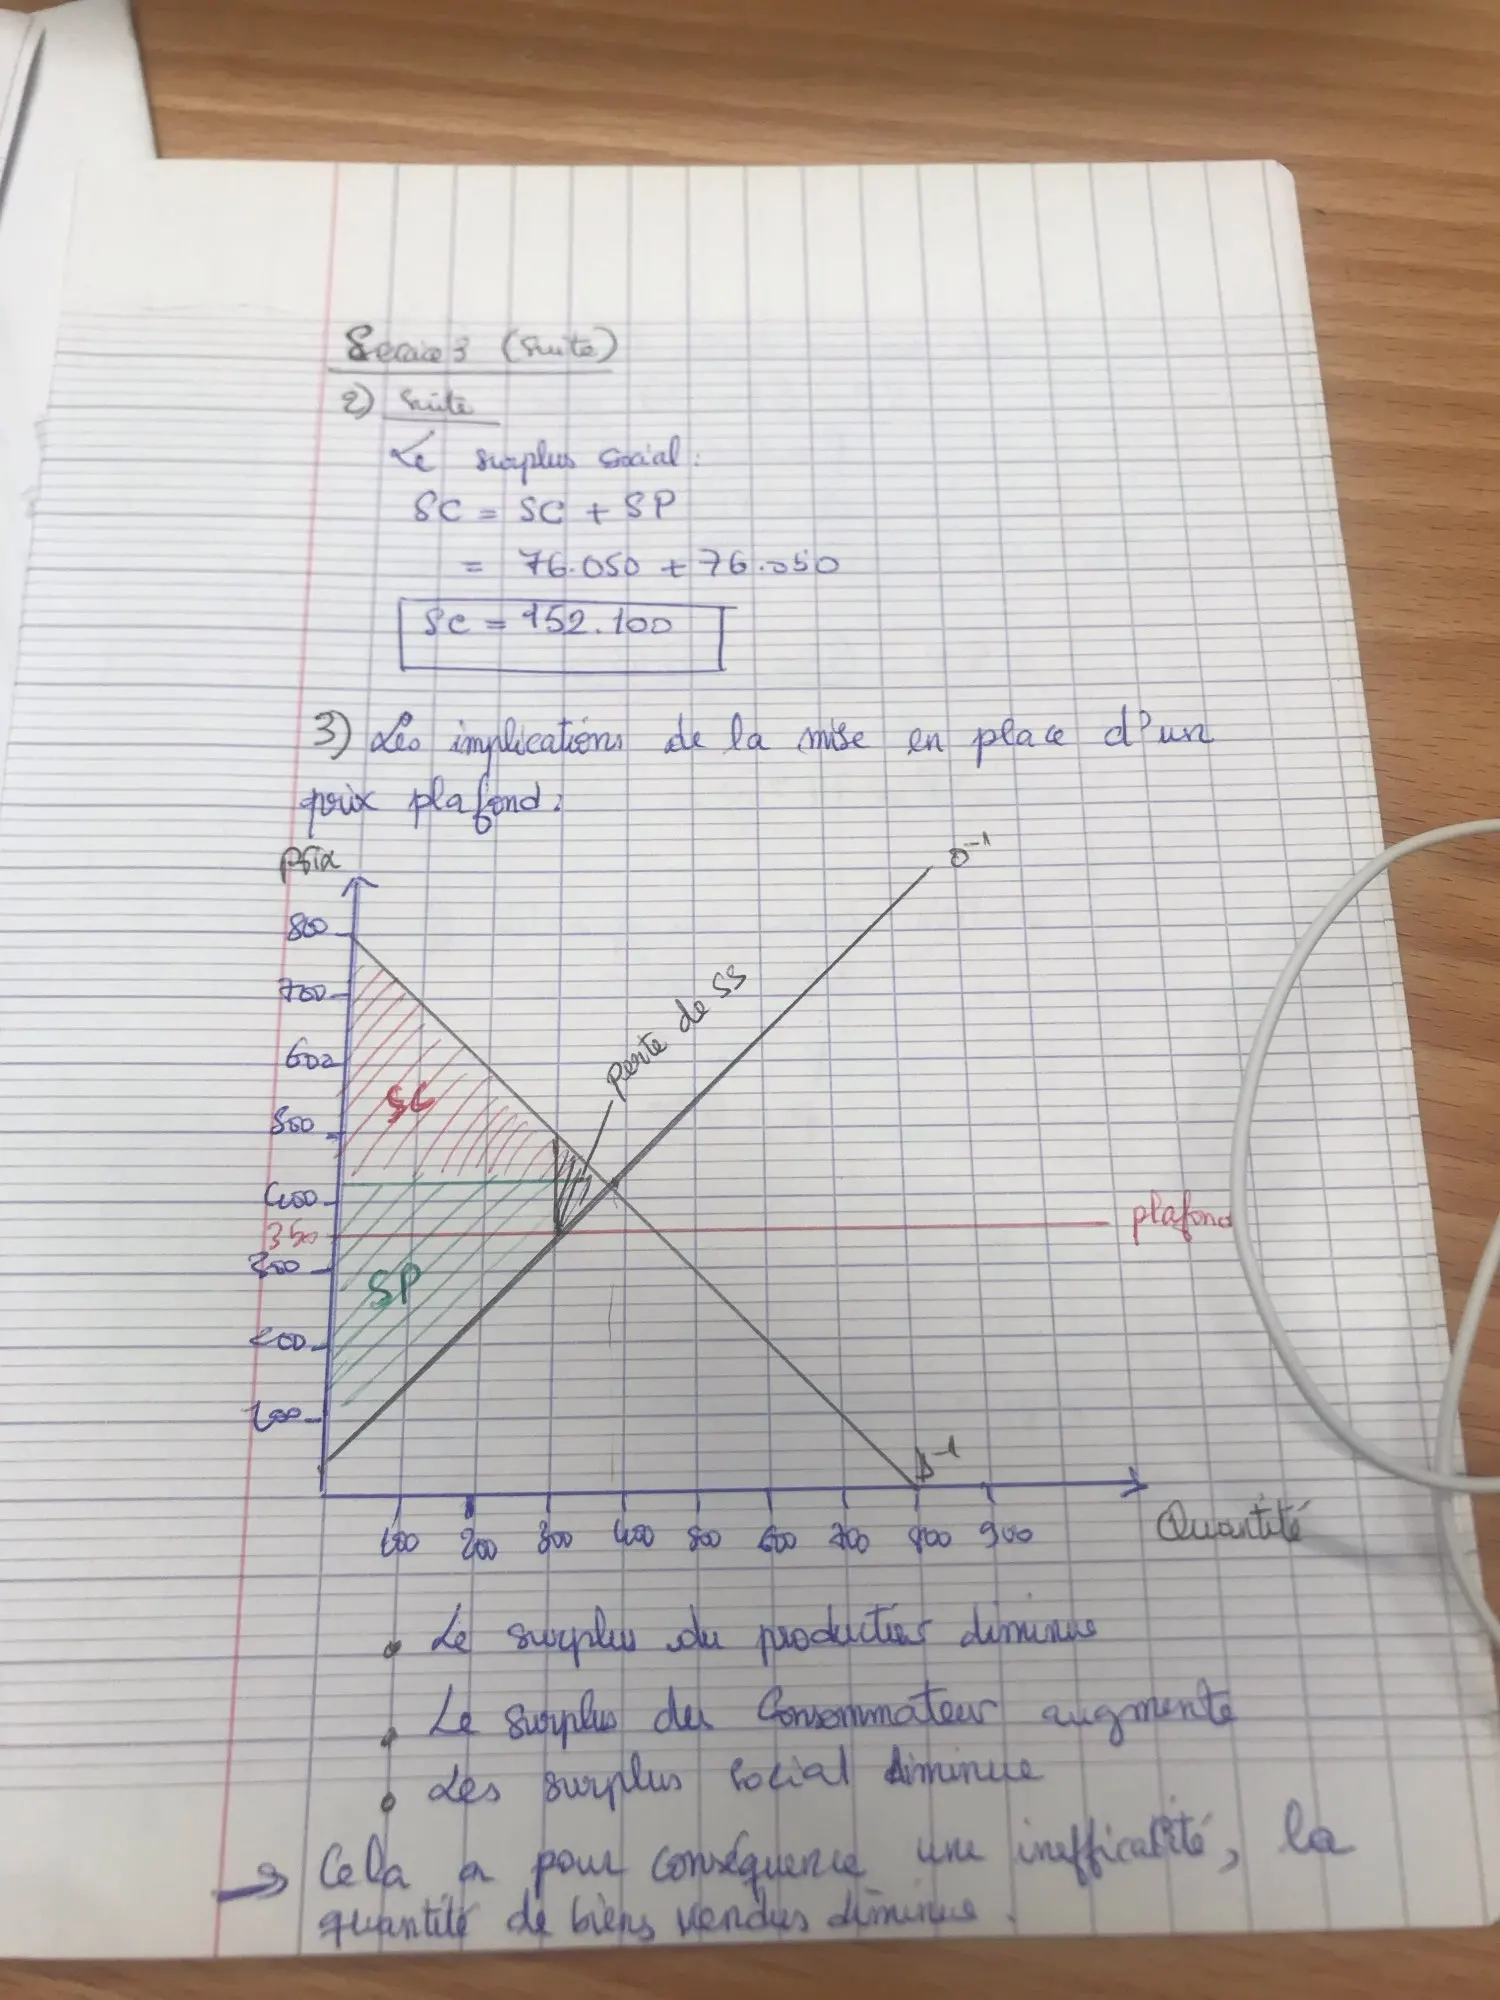 Série 3 (suite)
2) Suite
Le surplus social :
SC = SC + SP
= 76.050 + 76.050
SC = 152.100
3) Les implications de la mise en place d'un
prix plafond :
Prix
O⁻¹
800
700
600
500
400
350
300
200
100
SC
SP
perte de SS
plafond
D⁻¹
100 200 300 400 500 600 700 800 900
Quantité
• Le surplus du producteur diminue
• Le surplus du Consommateur augmente
• Les surplus social diminue
→ Cela a pour conséquence une inefficacité, la
quantité de biens vendus diminue.